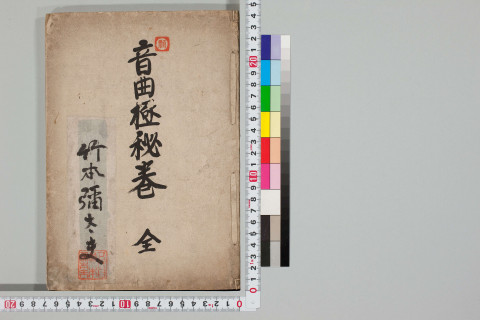 音曲極秘巻 全
竹本彌太夫